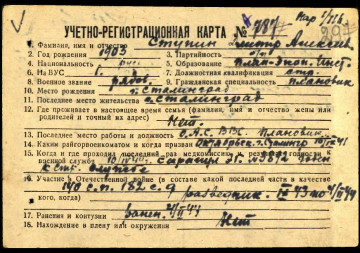 УЧЕТНО-РЕГИСТРАЦИОННАЯ КАРТА № 787
1. Фамилия, имя и отчество Ступин Дмитр Алексеев
2. Год рождения 1903 3. Партийность
4. Национальность рус 5. Образование План-Экон. Инст.
6. На ВУС 1 7. Должностная квалификация стр.
8. Военное звание рядов. 9. Гражданская специальность плановик
10. Место рождения г. Сталинград
11. Последнее место жительства г. Сталинград
12. Где проживает в настоящее время семья (фамилия, имя и отчество жены или
родителей и точный их адрес) Нет.
13. Последнее место работы и должность
14. Каким райгорвоенкоматом и когда призван Октябрьск. г. Сталингр 10/IV 41
15. Когда и где проходил последний раз медкомиссию и результат годности к
военной службе
к Стр. службе
16. Участие в Отечественной войне (в составе какой последней части в качестве
кого, когда) 140 с.п. 182 с.д разведчик. IV 43 по 2/II 44
17. Ранения и контузии ранен. 2/II 44
18. Нахождение в плену или окружении Нет